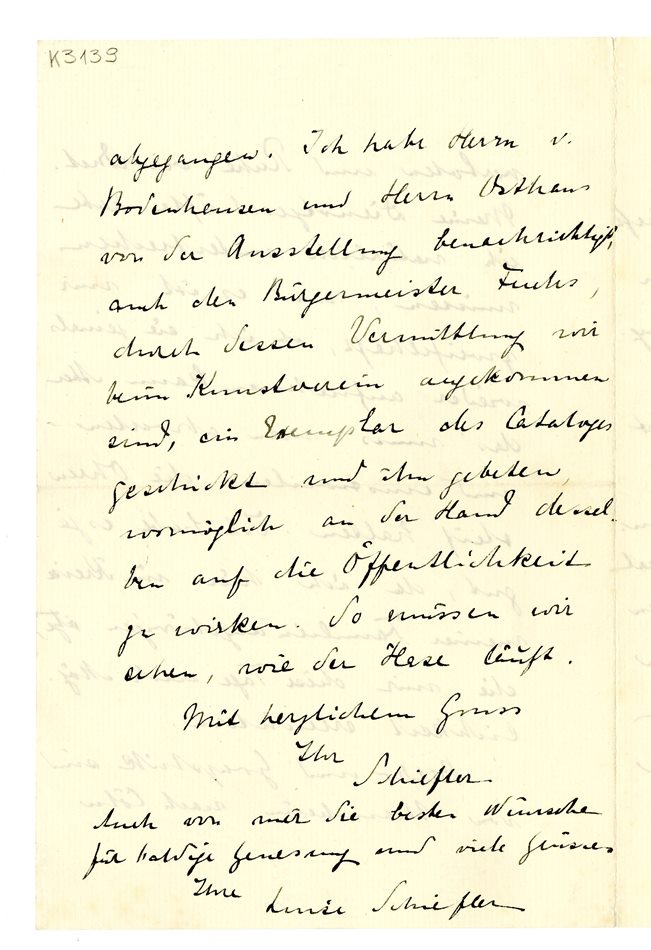 K3139
abgegangen. Ich habe Herrn v.
Bodenhausen und Herrn Osthaus
von der Ausstellung benachrichtigt,
auch den Bürgermeister Fuchs,
durch dessen Vermittlung wir
beim Kunstverein angekommen
sind, ein Exemplar des Cataloges
geschickt und ihn gebeten,
womöglich an der Hand dessel-
ben auf die Öffentlichkeit
zu wirken. So müssen wir
sehen, wie der Hase läuft.
Mit herzlichem Gruss
Ihr
Schiefler
Auch von mir die besten Wünsche
für baldige Genesung und viele Grüsse
Ihre
Luise Schiefler